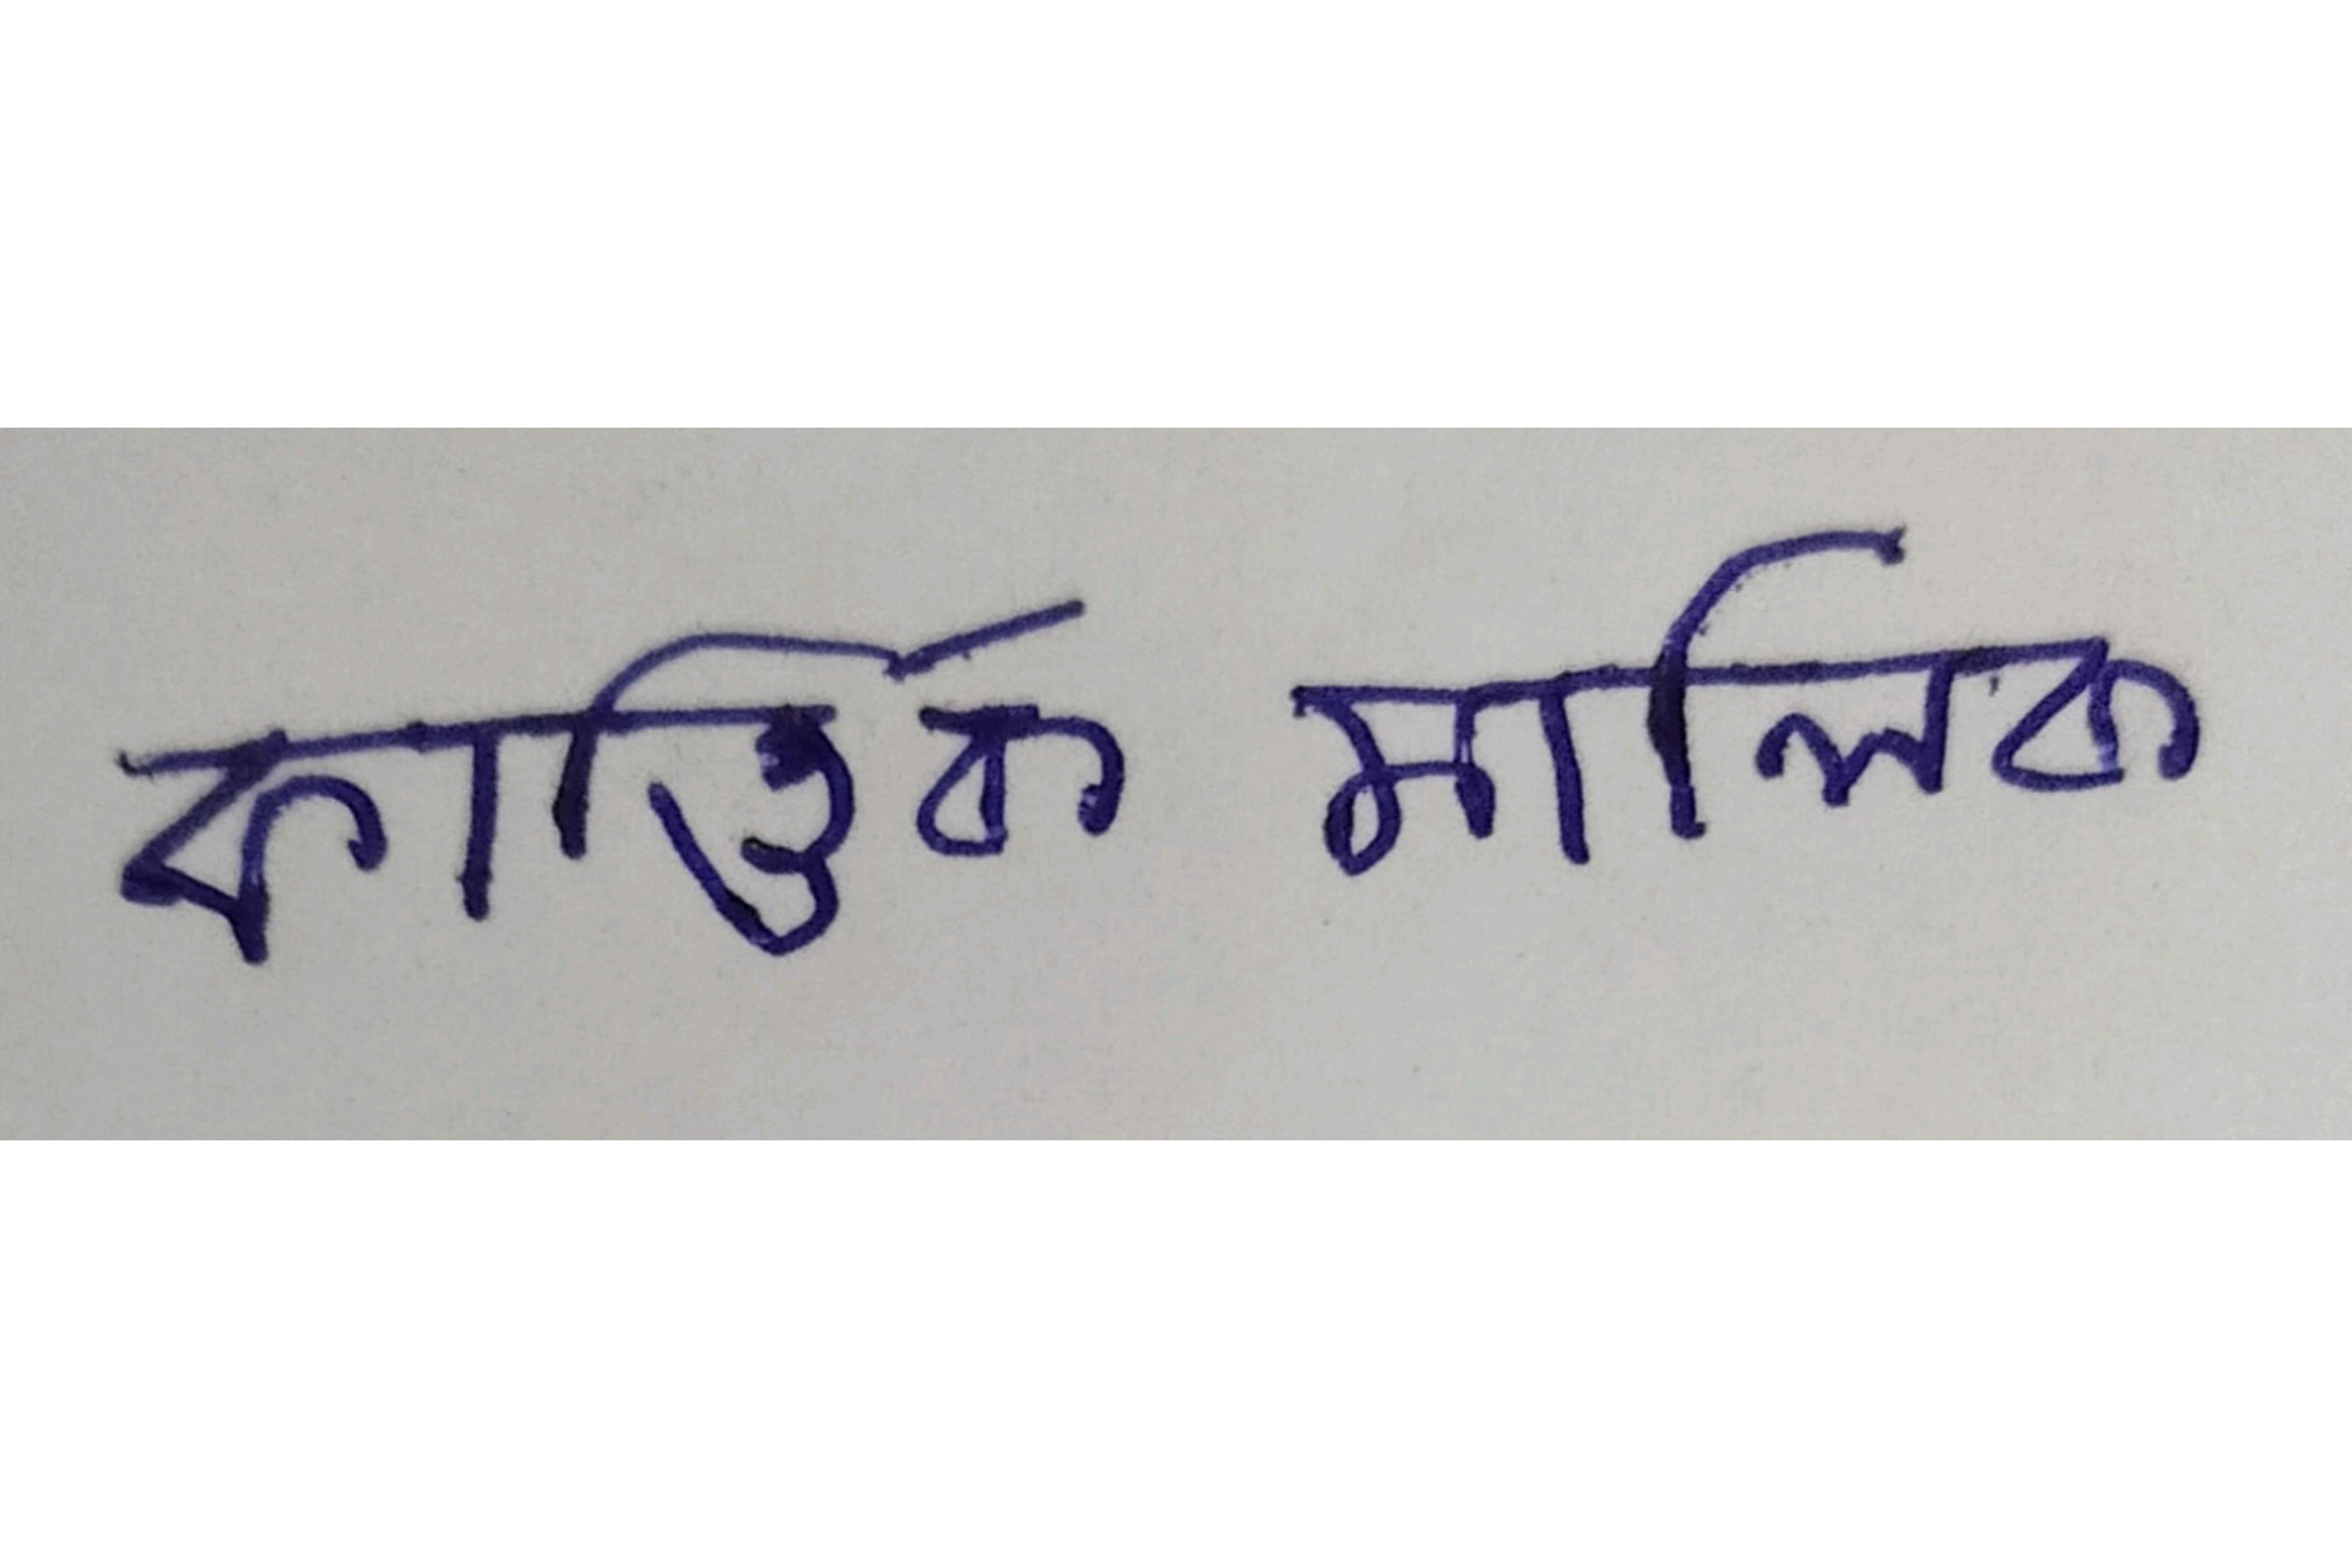 কার্ত্তিক মালিক